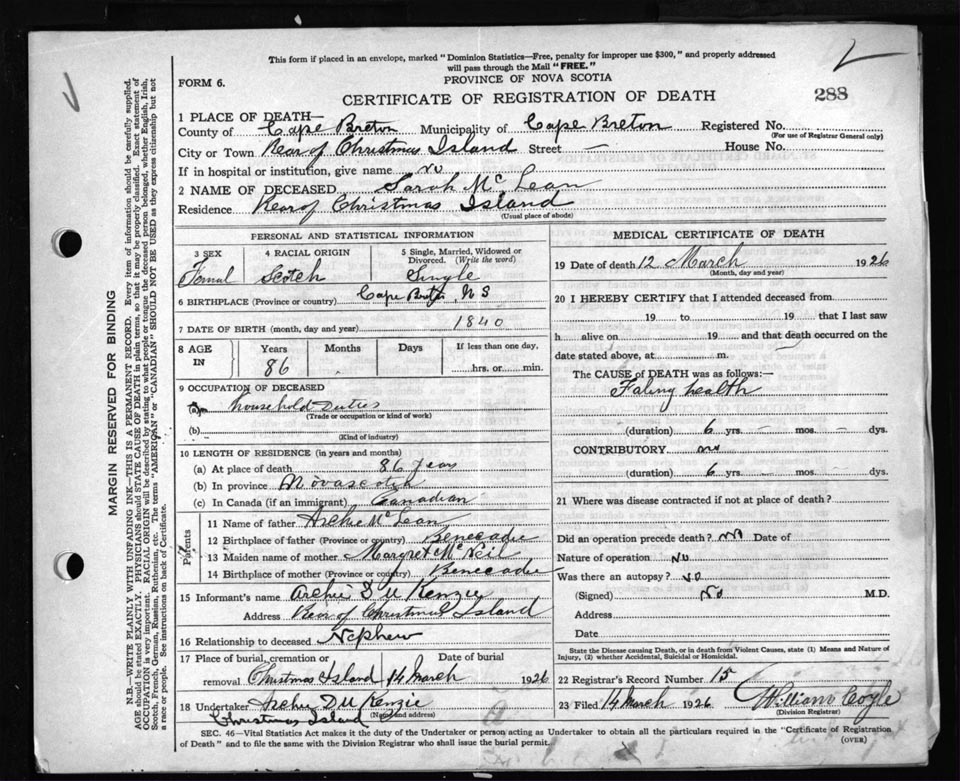 This form if placed in an envelope, marked "Dominion Statistics—Free, penalty for improper use $300," and properly addressed
will pass through the Mail "FREE."
FORM 6.
PROVINCE OF NOVA SCOTIA
CERTIFICATE OF REGISTRATION OF DEATH
288
1 PLACE OF DEATH—
County of Cape Breton Municipality of Cape Breton Registered No.
(For use of Registrar General only)
City or Town Rear of Christmas Island Street — House No.
If in hospital or institution, give name no
2 NAME OF DECEASED Sarah Mc Lean
Residence Rear of Christmas Island
(Usual place of abode)
PERSONAL AND STATISTICAL INFORMATION
3 SEX
4 RACIAL ORIGIN
5 Single, Married, Widowed or
Divorced. (Write the word)
Femal Scotch Single
6 BIRTHPLACE (Province or country) Cape Breton N S
7 DATE OF BIRTH (month, day and year) 1840
8 AGE IN
Years Months Days If less than one day,
86 hrs. or min.
9 OCCUPATION OF DECEASED
(a) household duties
(Trade or occupation or kind of work)
(b)
(Kind of industry)
10 LENGTH OF RESIDENCE (in years and months)
(a) At place of death 86 years
(b) In province Novascotia
(c) In Canada (if an immigrant) Canadian
Parents
11 Name of father Archie Mc Lean
12 Birthplace of father (Province or country) Benecadie
13 Maiden name of mother Margret Mc Neil
14 Birthplace of mother (Province or country) Benecadie
15 Informant's name Archie D
Address Rear of Christmas Island
16 Relationship to deceased Nephew
17 Place of burial, cremation or removal Date of burial
Christmas Island 14 March 1926
18 Undertaker Archie D
(Name and address)
Christmas Island
MEDICAL CERTIFICATE OF DEATH
19 Date of death 12 March 1926
(Month, day and year)
20 I HEREBY CERTIFY that I attended deceased from
19 to 19 that I last saw
h alive on 19 and that death occurred on the
date stated above, at m.
The CAUSE of DEATH was as follows:—
Faling health
(duration) 6 yrs. — mos. — dys.
CONTRIBUTORY no
(duration) 6 yrs. mos. dys.
21 Where was disease contracted if not at place of death?
Did an operation precede death? no Date of
Nature of operation No
Was there an autopsy? no
(Signed) No M.D.
Address
Date
State the Disease causing Death, or in death from Violent Causes, state (1) Means and Nature of
Injury, (2) whether Accidental, Suicidal or Homicidal.
22 Registrar's Record Number 15
23 Filed 14 March 1926 William Coyle
(Division Registrar)
SEC. 46—Vital Statistics Act makes it the duty of the Undertaker or person acting as Undertaker to obtain all the particulars required in the "Certificate of Registration
of Death" and to file the same with the Division Registrar who shall issue the burial permit.
(OVER)
MARGIN RESERVED FOR BINDING
N.B.—WRITE PLAINLY WITH UNFADING INK—THIS IS A PERMANENT RECORD. Every item of information should be carefully supplied.
AGE should be stated EXACTLY. PHYSICIANS should STATE CAUSE OF DEATH in plain terms, so that it may be properly classified. Exact statement of
OCCUPATION is very important. RACIAL ORIGIN will be described by stating to what people or tongue the deceased person belonged, whether English, Irish,
Scotch, French, German, Russian, Ruthenian, etc. The terms "AMERICAN" or "CANADIAN" SHOULD NOT BE USED as they express citizenship but not
a race or people. See instructions on back of Certificate.